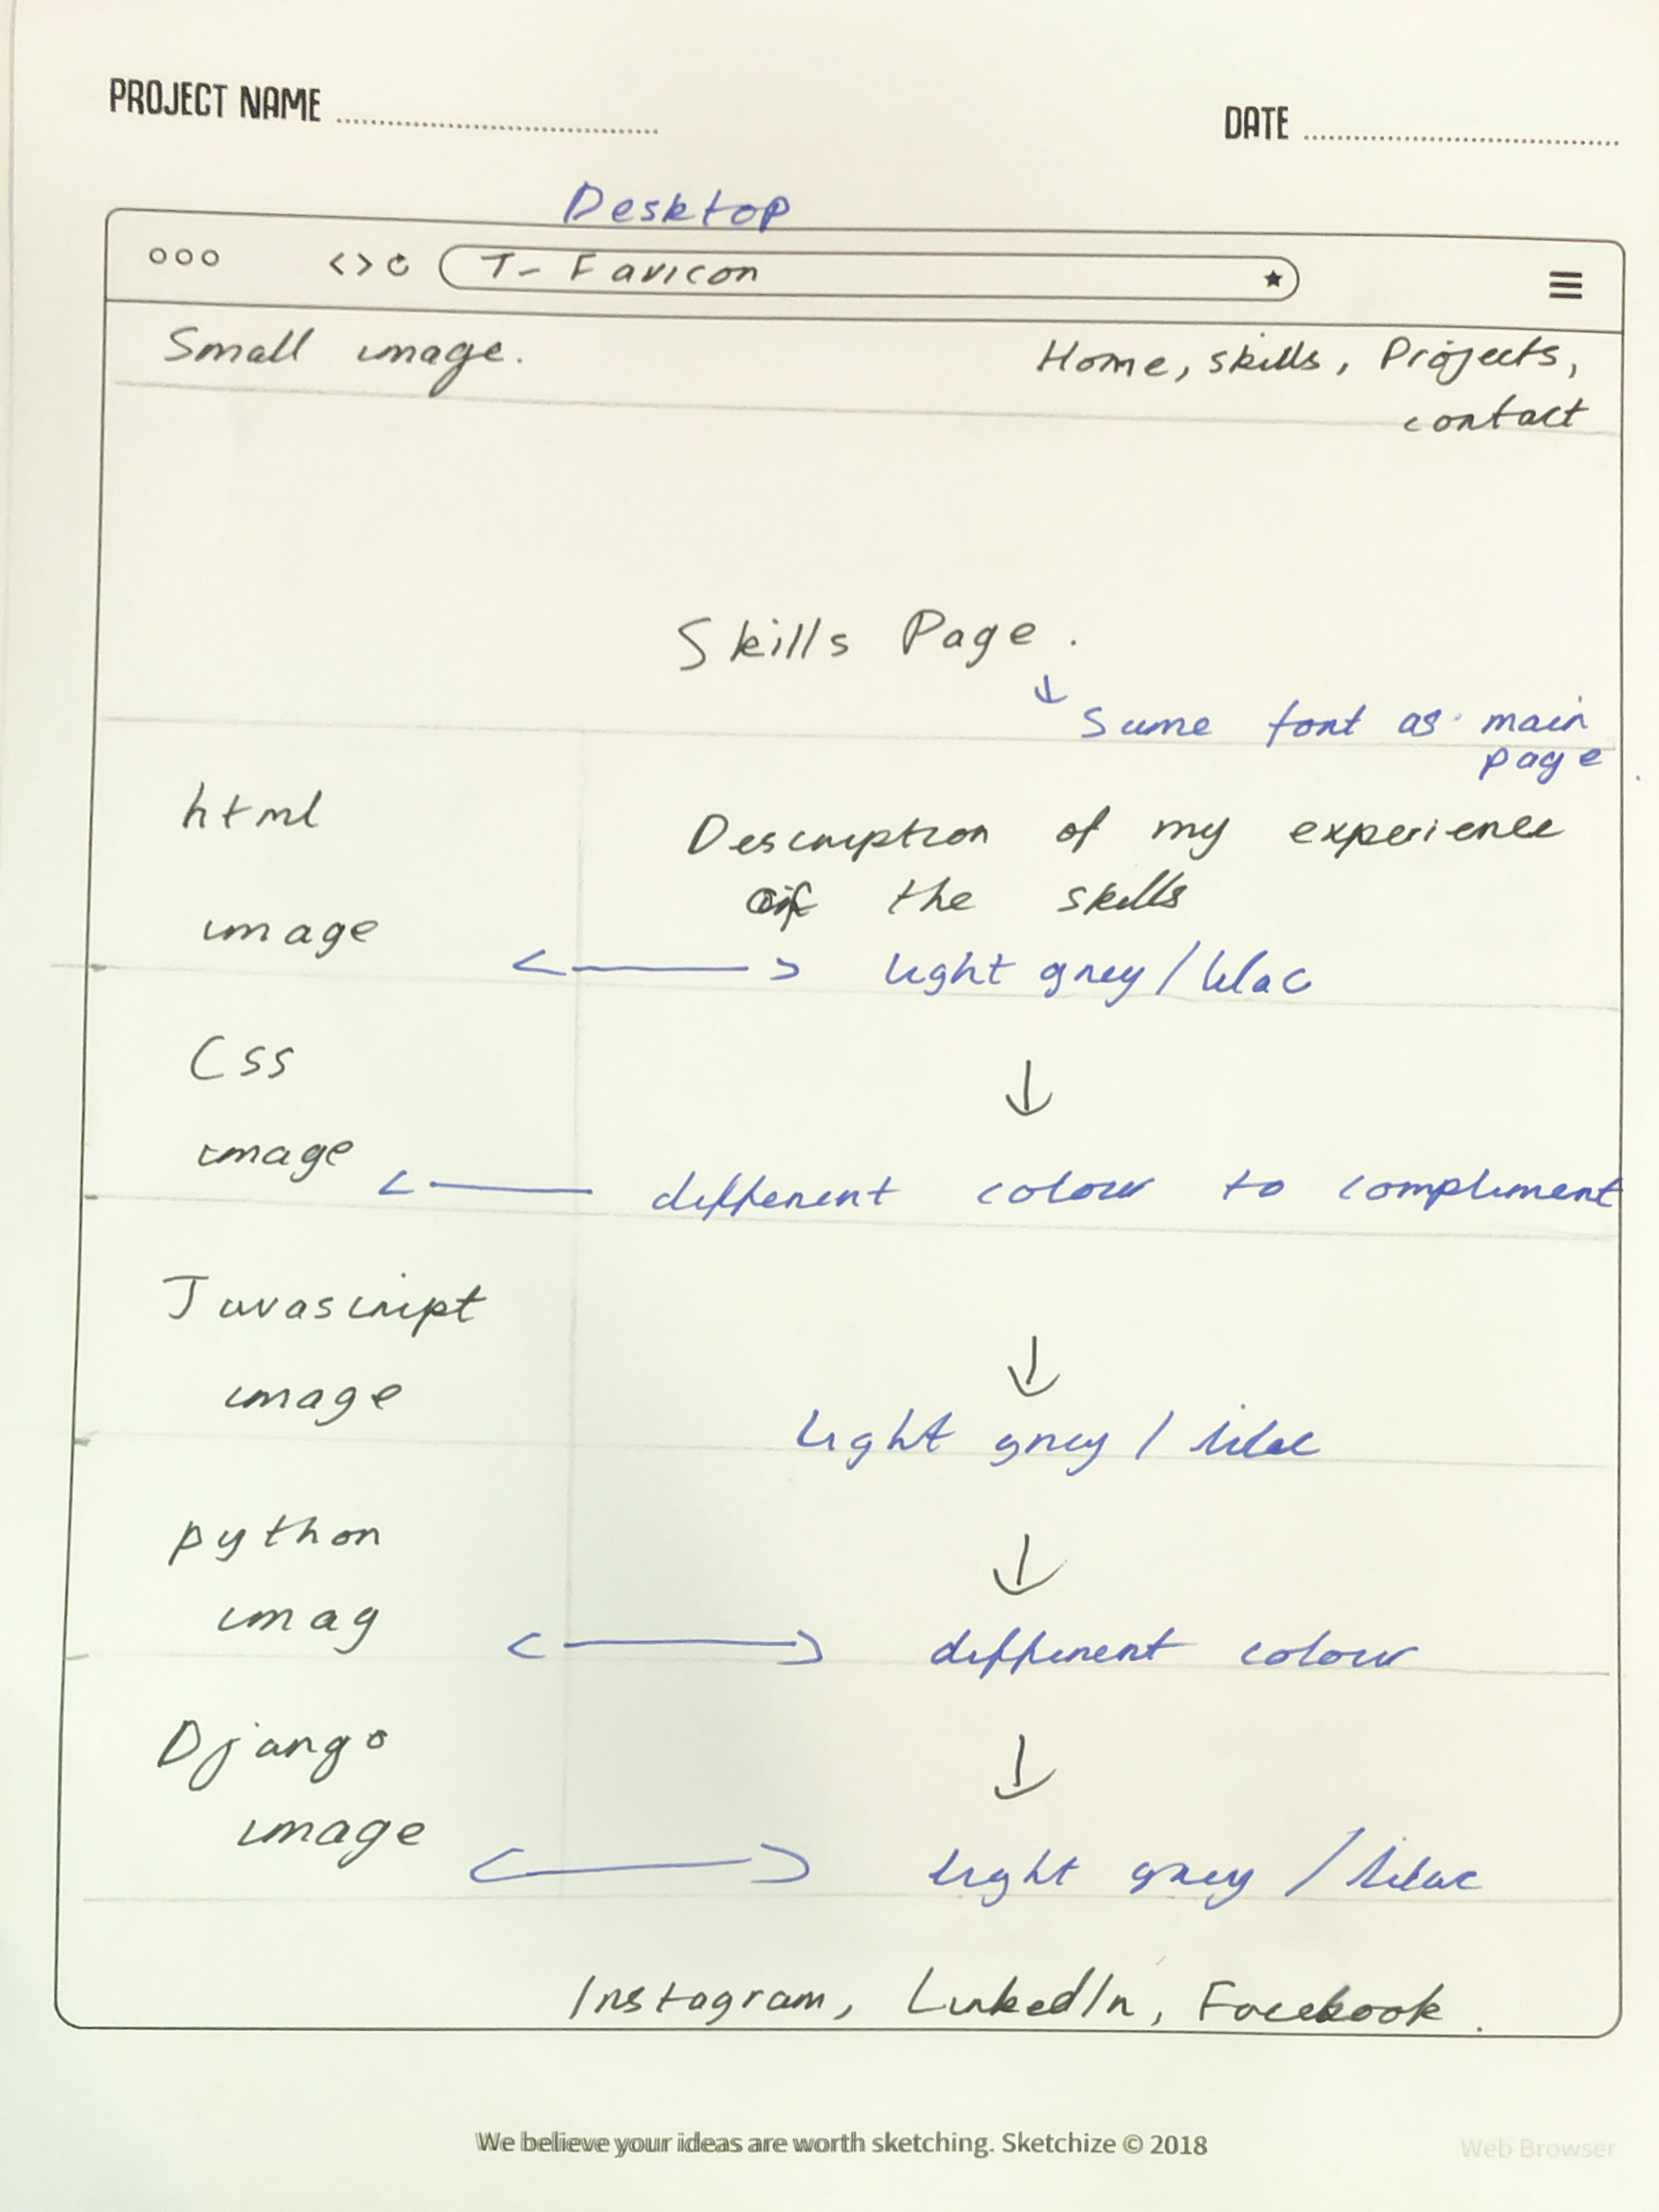 PROJECT NAME
DATE
Desktop
T- Favicon
Small image.
Home, skills, Projects,
contact
Skills Page.
Same font as main
page
html
Description of my experience
of the skills
image
light grey / lilac
Css
image
different colour to compliment
Javascript
image
light grey / lilac
python
imag
different colour
Django
image
light grey / lilac
Instagram, LinkedIn, Facebook.
We believe your ideas are worth sketching. Sketchize © 2018
Web Browser